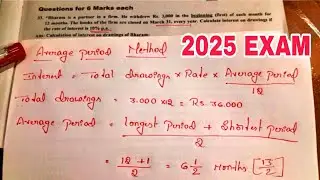 Questions for 6 Marks each
12. Bharam is a partner in a firm. He withdraws Rs. 3,000 in the beginning (first) of each month for
12 months. The books of the firm are closed on March 31, every year. Calculate interest on drawings if
the rate of interest is 10% p.a.
Calculation of interest on drawings of Bharam:
2025 EXAM
Average period Method
Interest = Total drawings × Rate × Average Period / 12
Total drawings = 3.000 × 12 = Rs. 36.000
Average Period = longest period + Shortest period / 2
= 12 + 1 / 2 = 6 1/2 months [13/2]